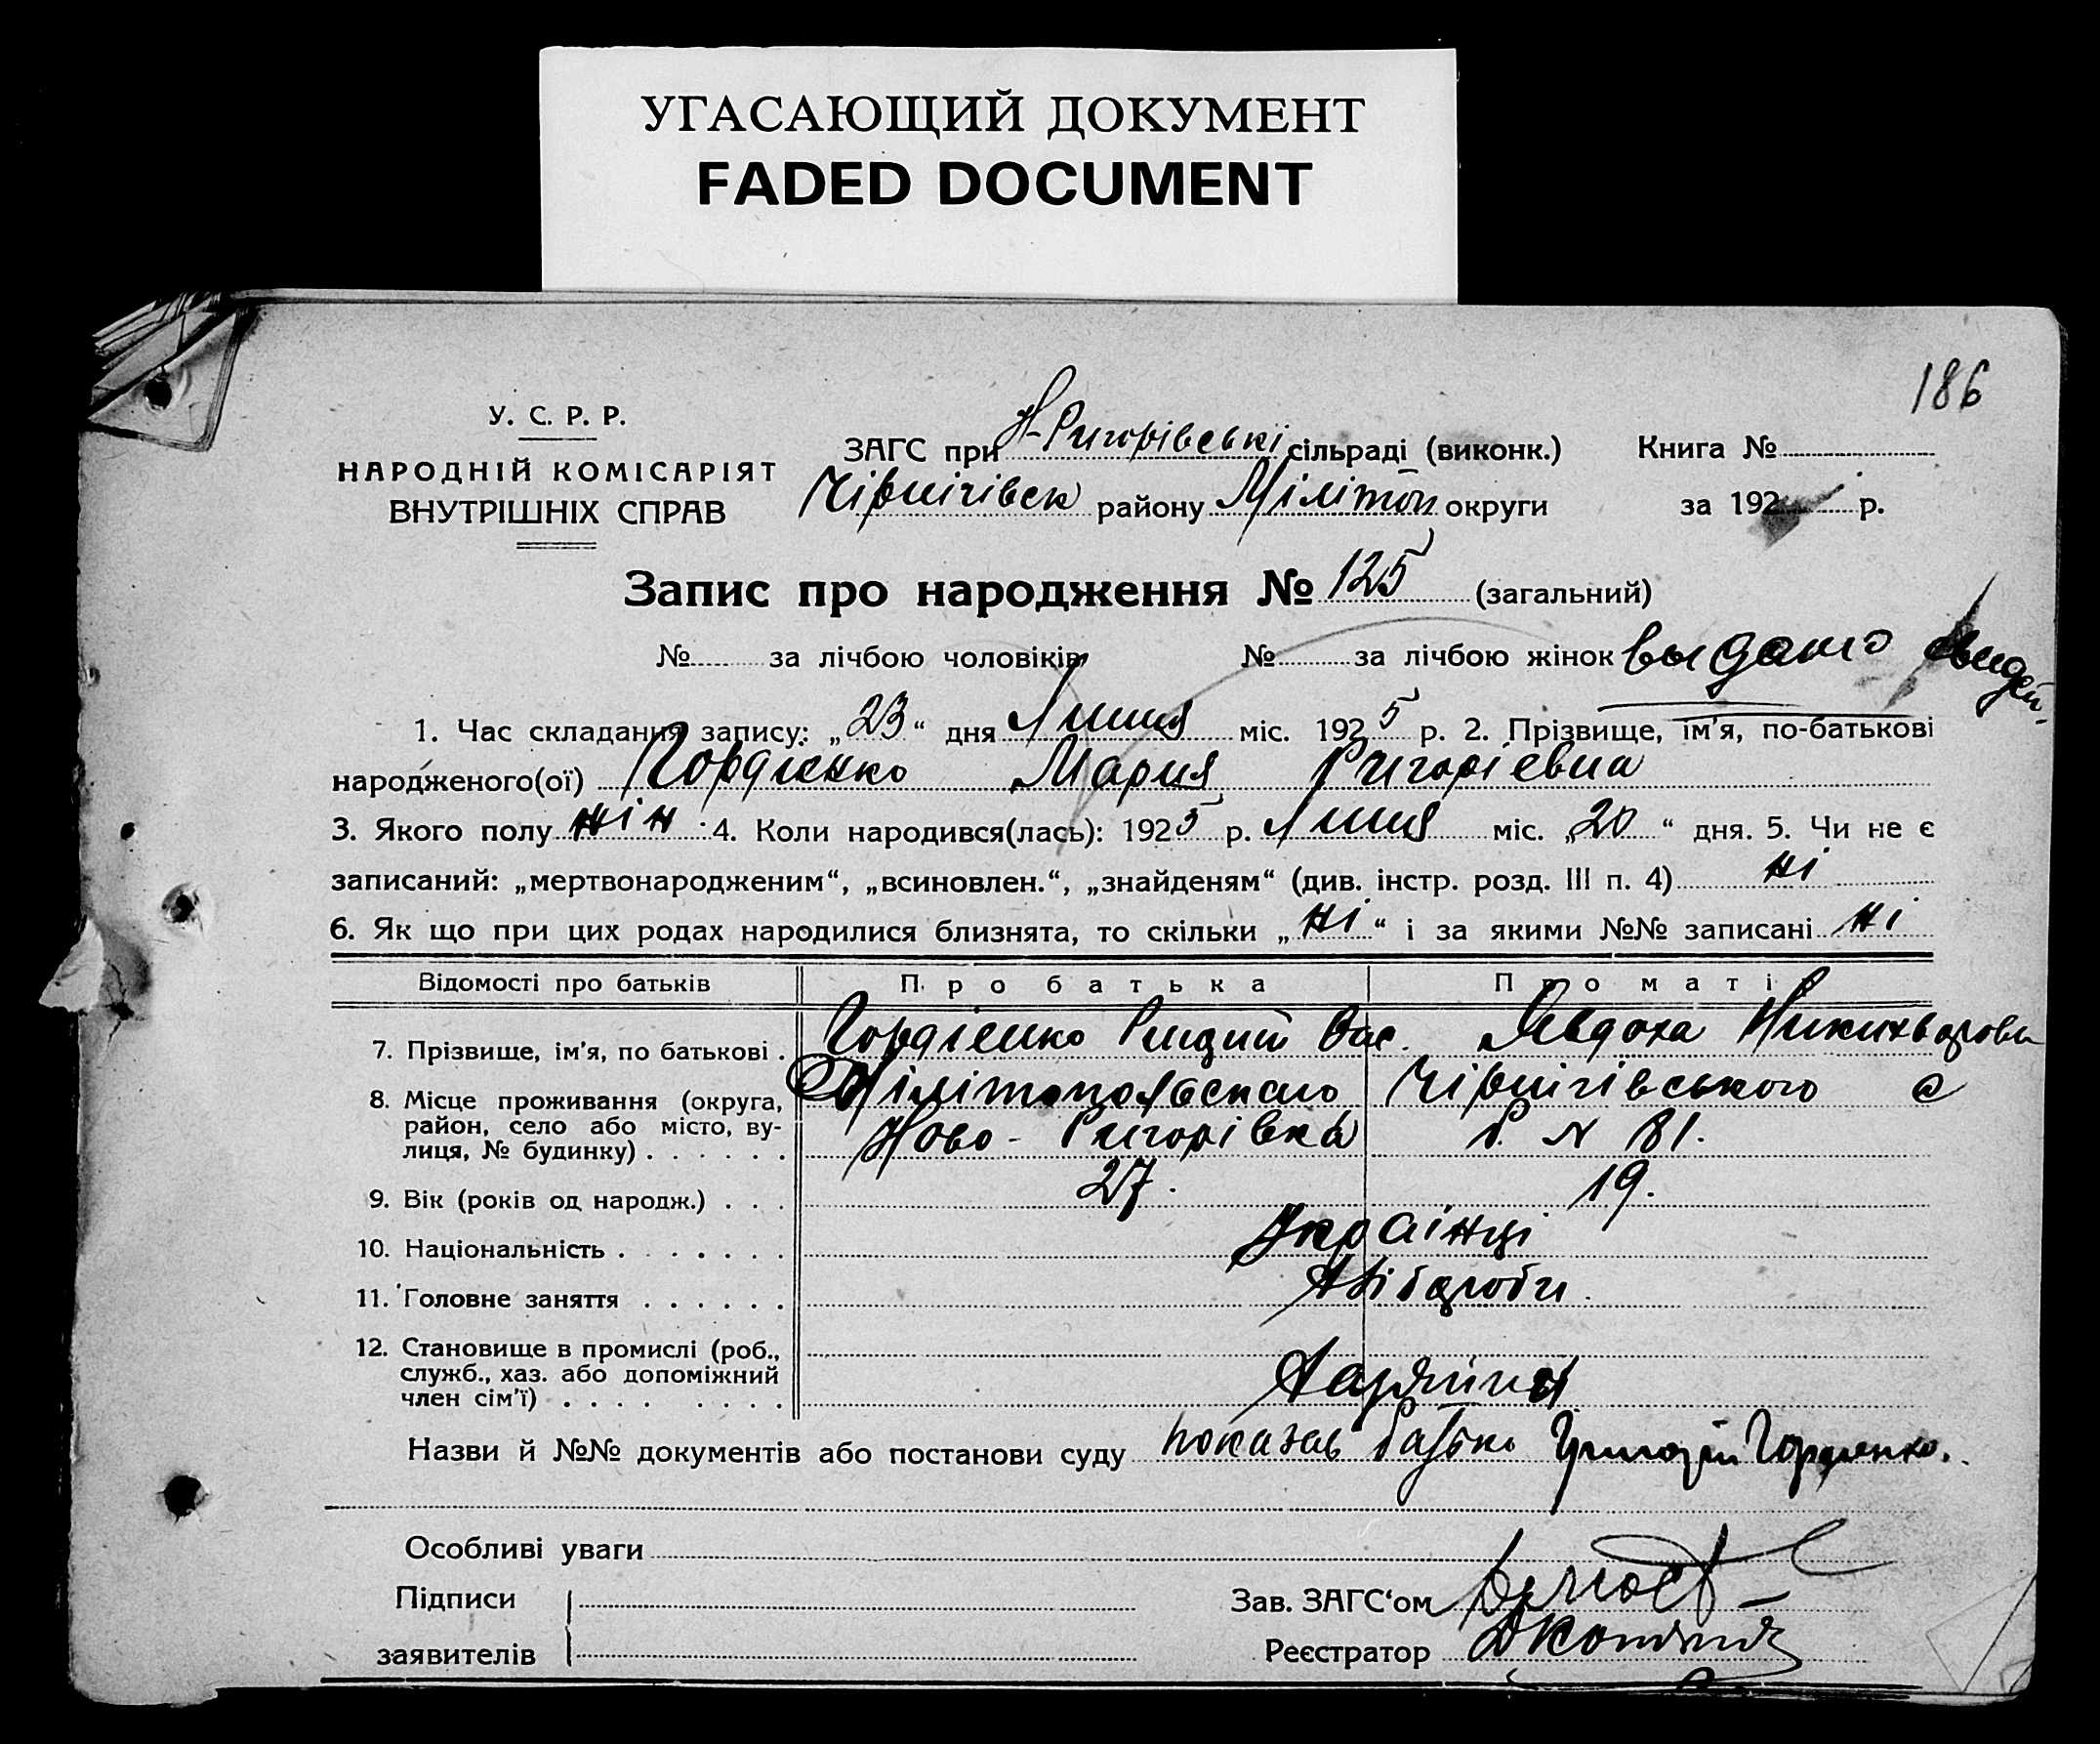 УГАСАЮЩИЙ ДОКУМЕНТ
FADED DOCUMENT
186
У. С. Р. Р.
НАРОДНІЙ КОМІСАРІЯТ
ВНУТРІШНІХ СПРАВ
ЗАГС при Н-Ригорівські сільраді (виконк.)
Чірнігівськ району Мілітоп округи
Книга №
за 192 р.
Запис про народження № 125 (загальний)
№ за лічбою чоловіків № за лічбою жінок выдано свидей.
1. Час складання запису: „23“ дня Липня міс. 1925 р. 2. Прізвище, ім'я, по-батькові
народженого(ої) Гордіенко Мария Ригоріевна
3. Якого полу жін 4. Коли народився(лась): 1925 р. Липня міс. „20“ дня. 5. Чи не є
записаний: „мертвонародженим“, „всиновлен.“, „знайденям“ (див. інстр. розд. III п. 4) ні
6. Як що при цих родах народилися близнята, то скільки „ні“ і за якими №№ записані ні
Відомості про батьків Про батька Про матір
7. Прізвище, ім'я, по батькові . Гордіенко Вас. Явдоха
8. Місце проживання (округа, Мілітопольского Чірнігівського
район, село або місто, ву- Ново-Ригорівка № 81.
лиця, № будинку)
9. Вік (років од народж.) . . . 27. 19.
10. Національність Українці
11. Головне заняття Хліборби
12. Становище в промислі (роб.,
служб., хаз. або допоміжний
член сім'ї)
Назви й №№ документів або постанови суду показав батько Григорій Гордиенко.
Особливі уваги
Підписи
заявителів
Зав. ЗАГС‘ом
Реєстратор